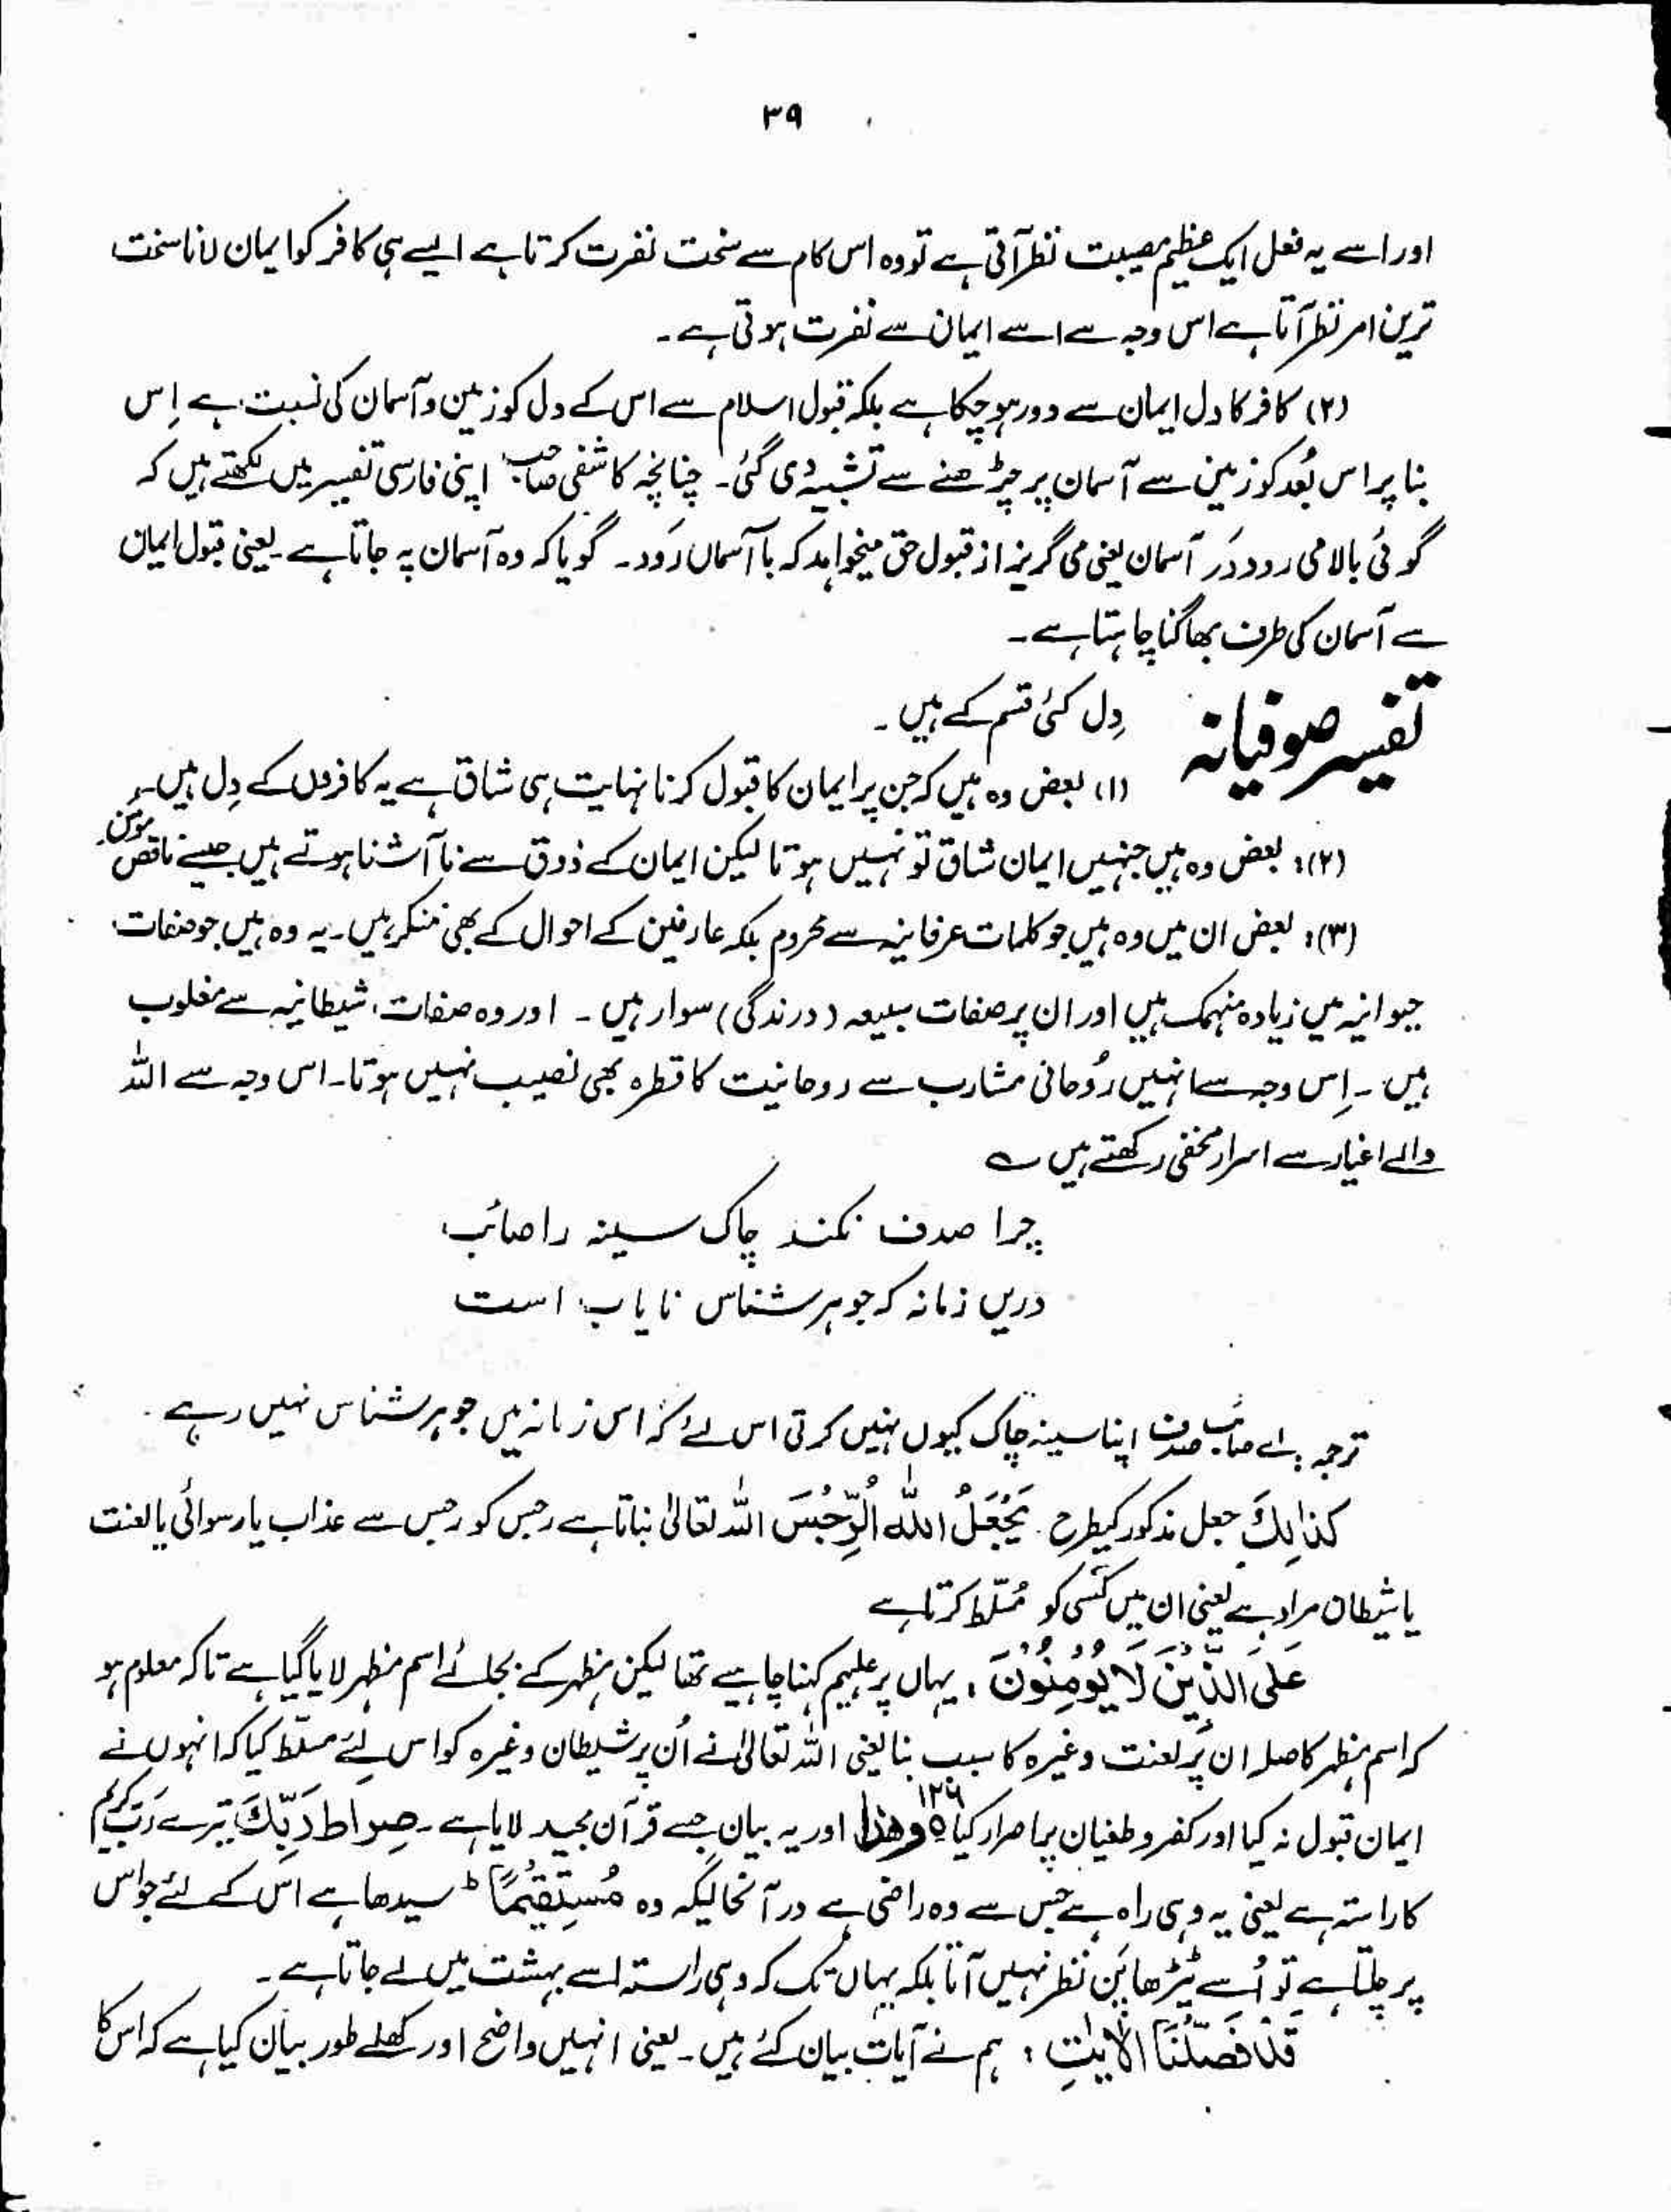 ۳۹
اور اسے یہ فعل ایک عظیم مصیبت نظر آتی ہے تو وہ اس کام سے سخت نفرت کرتا ہے ایسے ہی کافر کو ایمان لانا سخت
ترین امر نظر آتا ہے اس وجہ سے اسے ایمان سے نفرت ہوتی ہے۔
(۲) کافر کا دل ایمان سے دور ہو چکا ہے بلکہ قبول اسلام سے اس کے دل کو زمین و آسمان کی نسبت ہے اِس
بنا پر اس بُعد کو زمین سے آسمان پر چڑھنے سے تشبیہ دی گئی۔ چنانچہ کاشفی صاحب اپنی فارسی تفسیر میں لکھتے ہیں کہ
گوئی بالا می رود دَر آسمان یعنی می گریز از قبول حق میخواہد کہ با آسماں رَود۔ گویا کہ وہ آسمان پہ جاتا ہے۔ یعنی قبول ایمان
سے آسمان کی طرف بھاگنا چاہتا ہے۔
تفسیر صوفیانہ دِل کئی قسم کے ہیں۔
(۱) بعض وہ ہیں کہ جن پر ایمان کا قبول کرنا نہایت ہی شاق ہے یہ کافروں کے دِل ہیں۔
(۲): بعض وہ ہیں جنہیں ایمان شاق تو نہیں ہوتا لیکن ایمان کے ذوق سے نا آشنا ہوتے ہیں جیسے ناقص مومن۔
(۳): بعض ان میں وہ ہیں جو کلمات عرفانیہ سے محروم بلکہ عارفین کے احوال کے بھی منکر ہیں۔ یہ وہ ہیں جو صفات
حیوانیہ میں زیادہ منہمک ہیں اور ان پر صفات سبیعہ (درندگی) سوار ہیں۔ اور وہ صفات شیطانیہ سے مغلوب
ہیں۔ اِس وجہ سے انہیں رُوحانی مشارب سے روحانیت کا قطرہ بھی نصیب نہیں ہوتا۔ اس وجہ سے اللہ
والے اغیار سے اسرار مخفی رکھتے ہیں ؎
چرا صدف نکند چاک سینہ را صائب
دریں زمانہ کہ جوہر شناس نایاب است
ترجمہ: اے صائب صدف اپنا سینہ چاک کیوں نہیں کرتی اس لئے کہ اس زمانہ میں جوہر شناس نہیں رہے۔
کَذٰلِكَ جعل مذکور کیطرح۔ یَجْعَلُ اللّٰهُ الرِّجْسَ اللہ تعالیٰ بناتا ہے رجس کو رجس سے عذاب یا رسوائی یا لعنت
یا شیطان مراد ہے یعنی ان میں کسی کو مُسلّط کرتا ہے
عَلَى الَّذِيْنَ لَا يُؤْمِنُوْنَ، یہاں پر علیہم کہنا چاہیے تھا لیکن مظہر کے بجائے اسم مظہر لایا گیا ہے تاکہ معلوم ہو
کہ اسم مظہر کا صلہ ان پر لعنت وغیرہ کا سبب بنا یعنی اللہ تعالیٰ نے اُن پر شیطان وغیرہ کو اس لئے مسلّط کیا کہ انہوں نے
ایمان قبول نہ کیا اور کفر و طغیان پر اصرار کیا ۱۲۶ وَهٰذَا اور یہ بیان جسے قرآن مجید لایا ہے۔ صِرَاطُ رَبِّكَ تیرے رَبّ کریم
کا راستہ ہے یعنی یہ وہی راہ ہے جس سے وہ راضی ہے در آنحالیکہ وہ مُسْتَقِیْمًا ط سیدھا ہے اس کے لئے جو اس
پر چلتا ہے تو اُسے ٹیڑھا پَن نظر نہیں آتا بلکہ یہاں تک کہ وہی راستہ اسے بہشت میں لے جاتا ہے۔
قَدْ فَصَّلْنَا الْاٰیٰتِ: ہم نے آیات بیان کئے ہیں۔ یعنی انہیں واضح اور کھلے طور بیان کیا ہے کہ اس کا